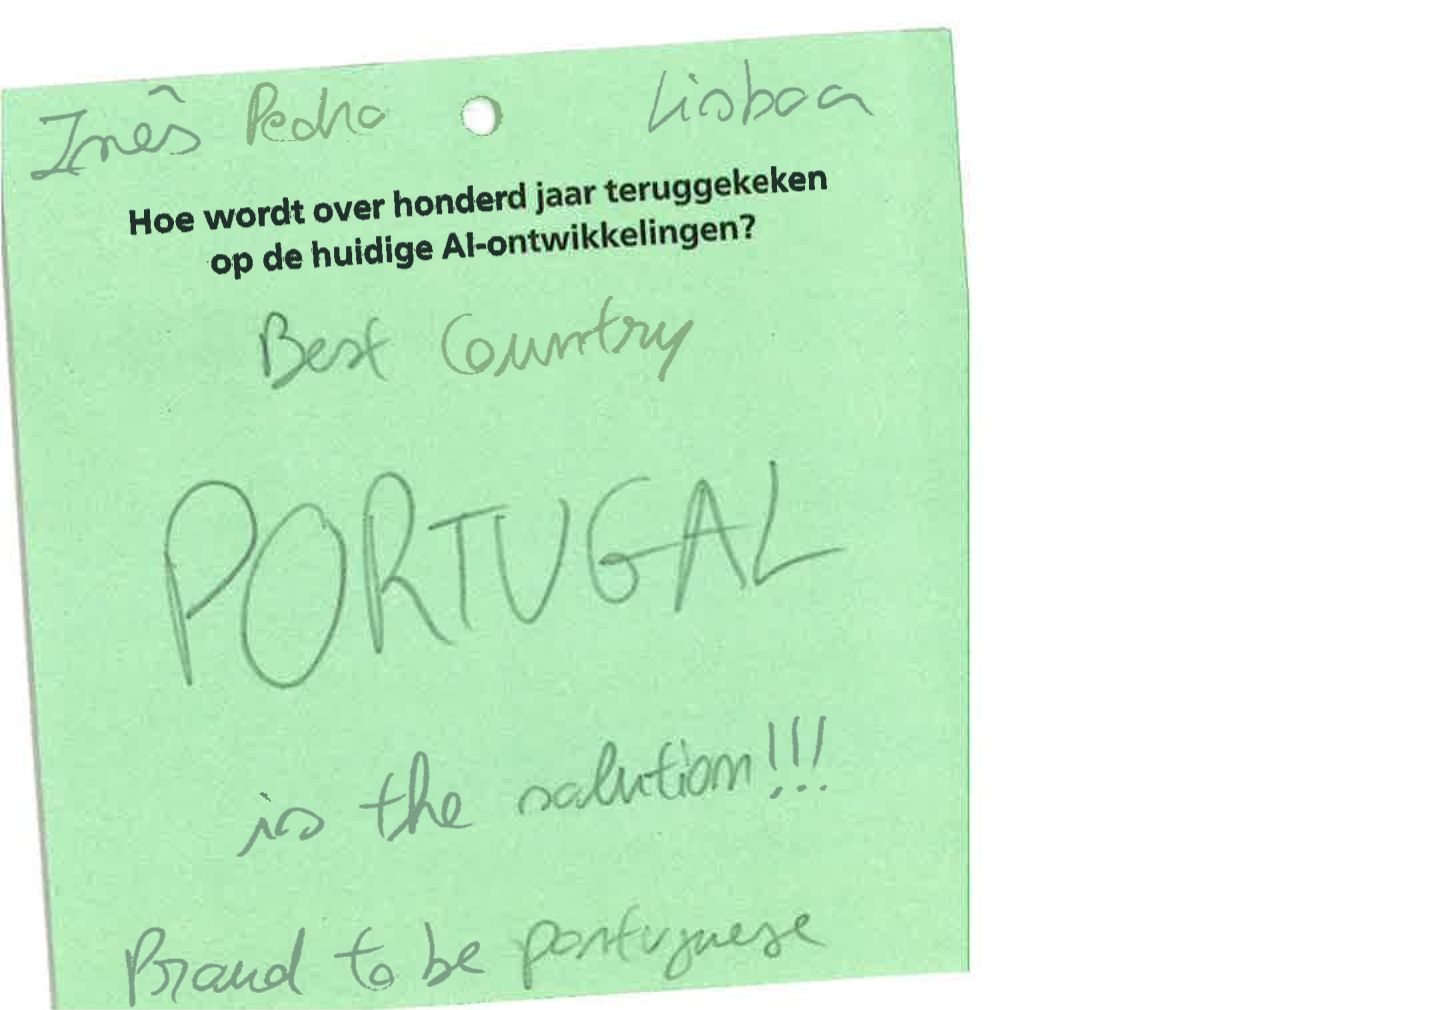 Inês Pedro Lisboa
Hoe wordt over honderd jaar teruggekeken
op de huidige AI-ontwikkelingen?
Best Country
PORTUGAL
is the solution!!!
Proud to be portuguese